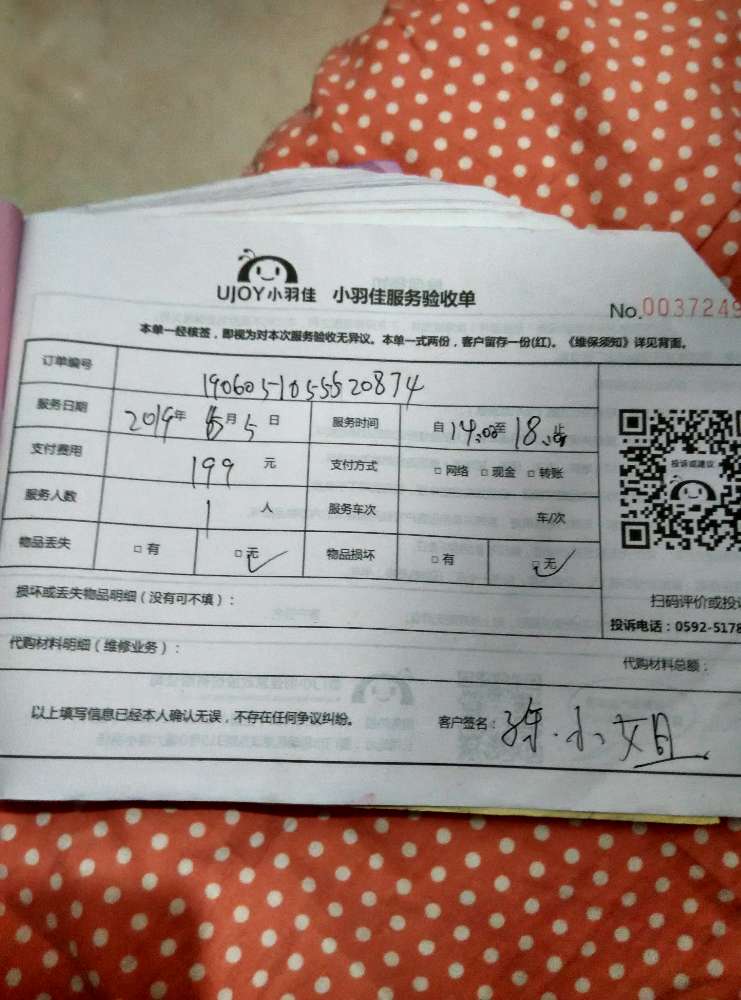 UJOY小羽佳 小羽佳服务验收单
No.0037249
本单一经核签，即视为对本次服务验收无异议。本单一式两份，客户留存一份(红)。《维保须知》详见背面。
订单编号 1906051055520874
服务日期 2019年 6月 5日 服务时间 自 14:00至 18:00止
支付费用 199 元 支付方式 □ 网络 □ 现金 □ 转账
服务人数 1 人 服务车次 车/次
物品丢失 □ 有 □ 无 物品损坏 □ 有 □ 无
投诉或建议
扫码评价或投
损坏或丢失物品明细（没有可不填）：
投诉电话：0592-5178
代购材料明细（维修业务）：
代购材料总额：
以上填写信息已经本人确认无误，不存在任何争议纠纷。
客户签名： 徐小姐